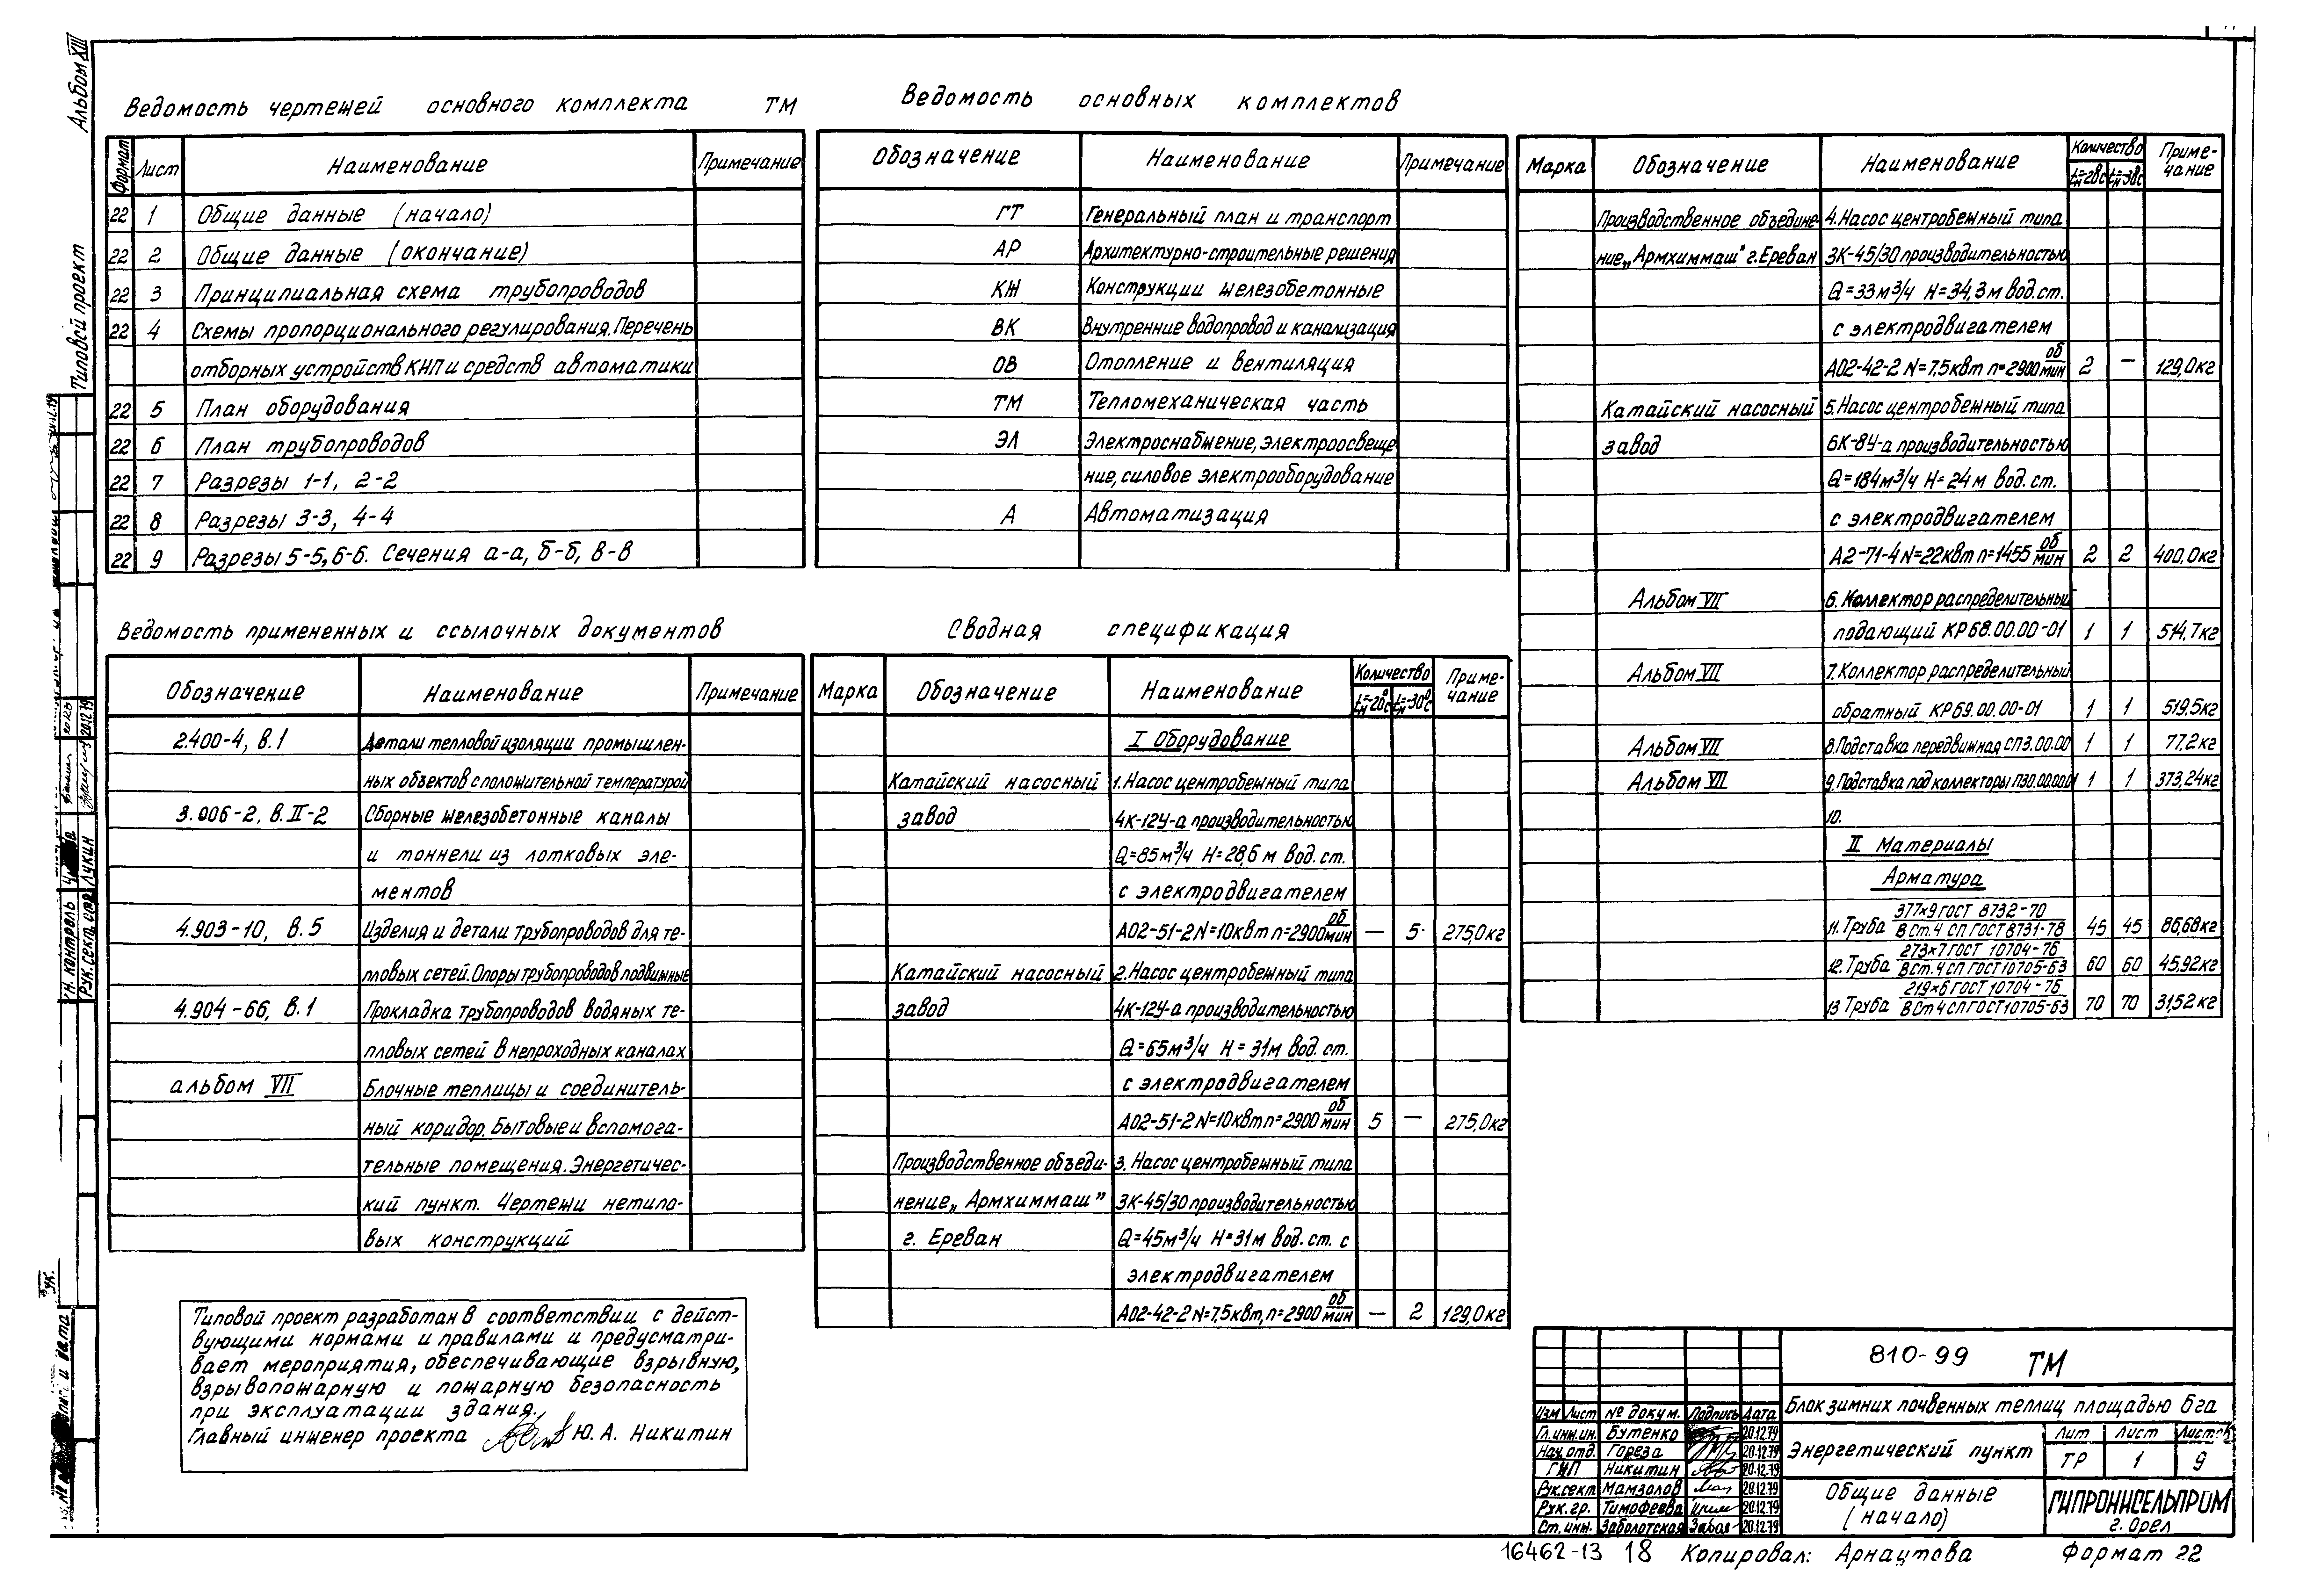 Альбом XIII
Типовой проект
Ведомость чертежей основного комплекта ТМ
Формат Лист Наименование Примечание
22 1 Общие данные (начало)
22 2 Общие данные (окончание)
22 3 Принципиальная схема трубопроводов
22 4 Схемы пропорционального регулирования. Перечень
отборных устройств КИП и средств автоматики
22 5 План оборудования
22 6 План трубопроводов
22 7 Разрезы 1-1, 2-2
22 8 Разрезы 3-3, 4-4
22 9 Разрезы 5-5, 6-6. Сечения а-а, б-б, в-в
Ведомость основных комплектов
Обозначение Наименование Примечание
ГТ Генеральный план и транспорт
АР Архитектурно-строительные решения
КЖ Конструкции железобетонные
ВК Внутренние водопровод и канализация
ОВ Отопление и вентиляция
ТМ Тепломеханическая часть
ЭЛ Электроснабжение, электроосвеще
ние, силовое электрооборудование
А Автоматизация
Ведомость примененных и ссылочных документов
Обозначение Наименование Примечание
2.400-4, в.1 Детали тепловой изоляции промышлен-
ных объектов с положительной температурой
3.006-2, в. II-2 Сборные железобетонные каналы
и тоннели из лотковых эле-
ментов
4.903-10, в.5 Изделия и детали трубопроводов для те-
пловых сетей. Опоры трубопроводов подвижные
4.904-66, в.1 Прокладка трубопроводов водяных те-
пловых сетей в непроходных каналах
альбом VII Блочные теплицы и соединитель-
ный коридор. Бытовые и вспомога-
тельные помещения. Энергетичес-
кий пункт. Чертежи нетипо-
вых конструкций
Сводная спецификация
Марка Обозначение Наименование Количество Приме-
tн=-20°с tн=-30°с чание
I Оборудование
Катайский насосный 1. Насос центробежный типа
завод 4К-12У-а производительностью
Q=85м³/ч Н=28,6 м вод. ст.
с электродвигателем
А02-51-2 N=10квт n=2900 об/мин — 5 275,0кг
Катайский насосный 2. Насос центробежный типа
завод 4К-12У-а производительностью
Q=65м³/ч Н=31м вод. ст.
с электродвигателем
А02-51-2 N=10квт n=2900 об/мин 5 — 275,0кг
Производственное объеди- 3. Насос центробежный типа
нение „Армхиммаш” 3К-45/30 производительностью
г. Ереван Q=45м³/ч Н=31м вод. ст. с
электродвигателем
А02-42-2 N=7,5квт, n=2900 об/мин — 2 129,0кг
Марка Обозначение Наименование Количество Приме-
чание
Производственное объедине 4. Насос центробежный типа
ние „Армхиммаш" г. Ереван 3К-45/30 производительностью
Q=33м³/ч Н=34,3м вод. ст.
с электродвигателем
А02-42-2 N=7,5квт n=2900 об/мин 2 — 129,0кг
Катайский насосный 5. Насос центробежный типа
завод 6К-8У-а производительностью
Q=184м³/ч Н=24м вод. ст.
с электродвигателем
А2-71-4 N=22квт n=1455 об/мин 2 2 400,0кг
Альбом VII 6. Коллектор распределительный
подающий КР68.00.00-01 1 1 514,7кг
Альбом VII 7. Коллектор распределительный
обратный КР69.00.00-01 1 1 519,5кг
Альбом VII 8. Подставка передвижная СП3.00.00 1 1 77,2кг
Альбом VII 9. Подставка под коллекторы П30.00.000 1 1 373,24кг
10.
II Материалы
Арматура
11. Труба 377×9 ГОСТ 8732-70 / В Ст.4 СП ГОСТ 8731-78 45 45 86,68кг
12. Труба 273×7 ГОСТ 10704-76 / В Ст. 4 СП ГОСТ 10705-63 60 60 45,92кг
13 Труба 219×6 ГОСТ 10704-76 / В Ст 4 СП ГОСТ 10705-63 70 70 31,52кг
Типовой проект разработан в соответствии с дейст-
вующими нормами и правилами и предусматри-
вает мероприятия, обеспечивающие взрывную,
взрывопожарную и пожарную безопасность
при эксплуатации здания.
Главный инженер проекта Ю. А. Никитин
810-99 ТМ
Блок зимних почвенных теплиц площадью 6га
Изм Лист № докум. Подпись Дата
Гл.инж.ин. Бутенко 20.12.79
Нач.отд. Гореза 20.12.79
ГИП Никитин 20.12.79
Рук.сект Мамзолов 20.12.79
Рук. гр. Тимофеева 20.12.79
Ст. инж. Заболотская 20.12.79
Энергетический пункт
Лит Лист Листов
ТР 1 9
Общие данные
(начало)
ГИПРОНИСЕЛЬПРОМ
г. Орел
16462-13 18 Копировал: Арнаутова Формат 22
Н. контроль
Рук. сект. Лукин 20.12.79